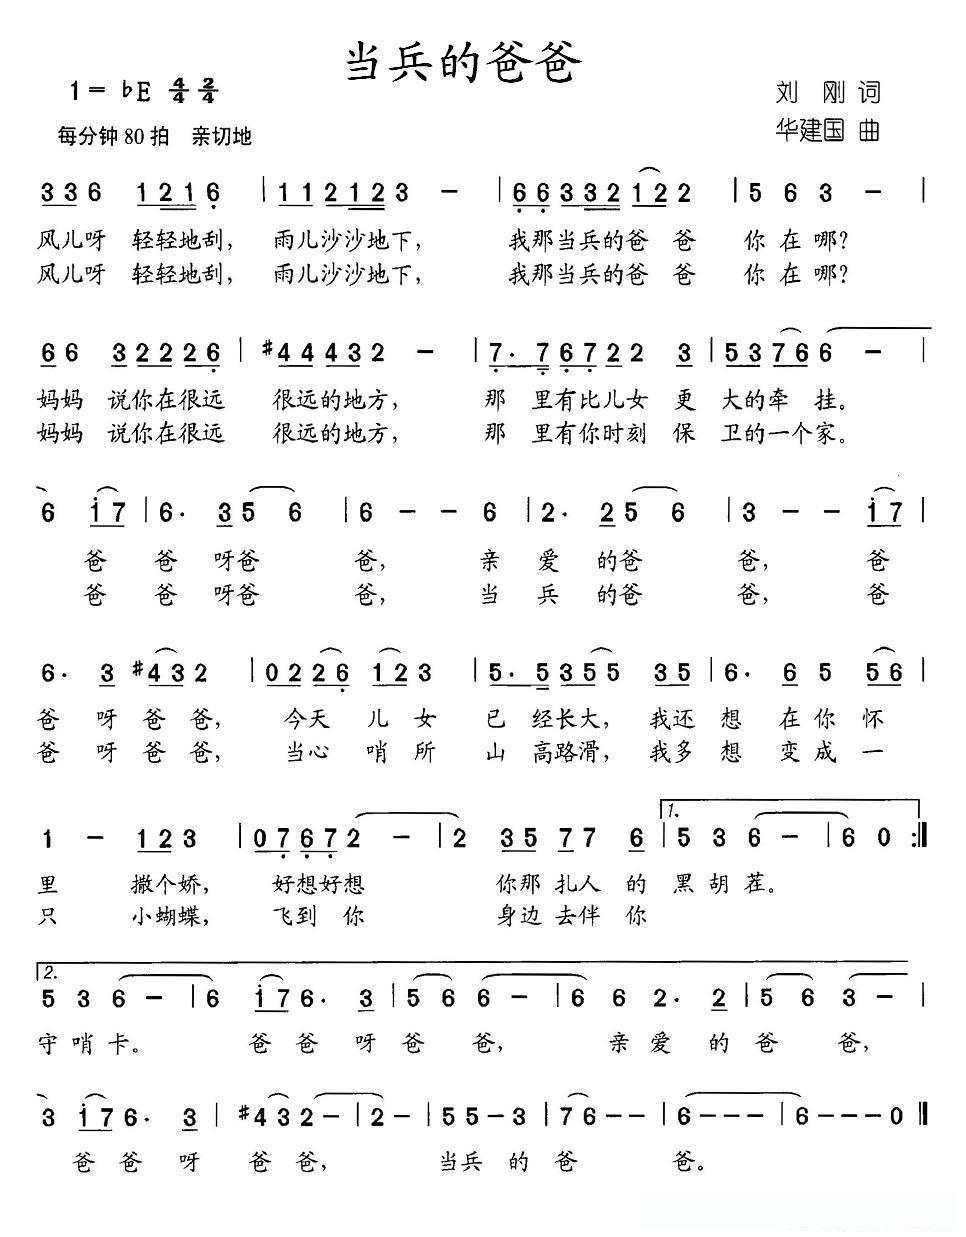 当兵的爸爸
1=♭E 4/4 2/4
刘 刚 词
每分钟80拍 亲切地
华建国 曲
3 3 6 1 2 1 6 | 1 1 2 1 2 3 - | 6 6 3 3 2 1 2 2 | 5 6 3 - |
风儿呀 轻轻地刮, 雨儿沙沙地下, 我那当兵的爸 爸 你 在 哪?
风儿呀 轻轻地刮, 雨儿沙沙地下, 我那当兵的爸 爸 你 在 哪?
6 6 3 2 2 2 6 | #4 4 4 3 2 - | 7· 7 6 7 2 2 3 | 5 3 7 6 6 - |
妈妈 说你在很远 很远的地方, 那 里有比儿女 更 大的牵 挂。
妈妈 说你在很远 很远的地方, 那 里有你时刻 保 卫的一个家。
6 i 7 | 6· 3 5 6 | 6 - - 6 | 2· 2 5 6 | 3 - - i 7 |
爸 爸 呀爸 爸, 亲 爱 的爸 爸, 爸
爸 爸 呀爸 爸, 当 兵 的爸 爸, 爸
6· 3 #4 3 2 | 0 2 2 6 1 2 3 | 5· 5 3 5 5 3 5 | 6· 6 5 5 6 |
爸 呀 爸 爸, 今天 儿 女 已 经长大, 我还 想 在 你 怀
爸 呀 爸 爸, 当心 哨 所 山 高路滑, 我多 想 变 成 一
1.
1 - 1 2 3 | 0 7 6 7 2 - | 2 3 5 7 7 6 | 5 3 6 - | 6 0 :‖
里 撒个娇, 好想好想 你那 扎人 的 黑 胡 茬。
只 小蝴蝶, 飞到 你 身边 去伴 你
2.
5 3 6 - | 6 i 7 6· 3 | 5 6 6 - | 6 6 2· 2 | 5 6 3 - |
守 哨 卡。 爸 爸 呀 爸 爸, 亲 爱 的 爸 爸,
3 i 7 6· 3 | #4 3 2 - | 2 - | 5 5 - 3 | 7 6 - - | 6 - - - | 6 - - 0 ‖
爸 爸 呀 爸 爸, 当兵 的 爸 爸。